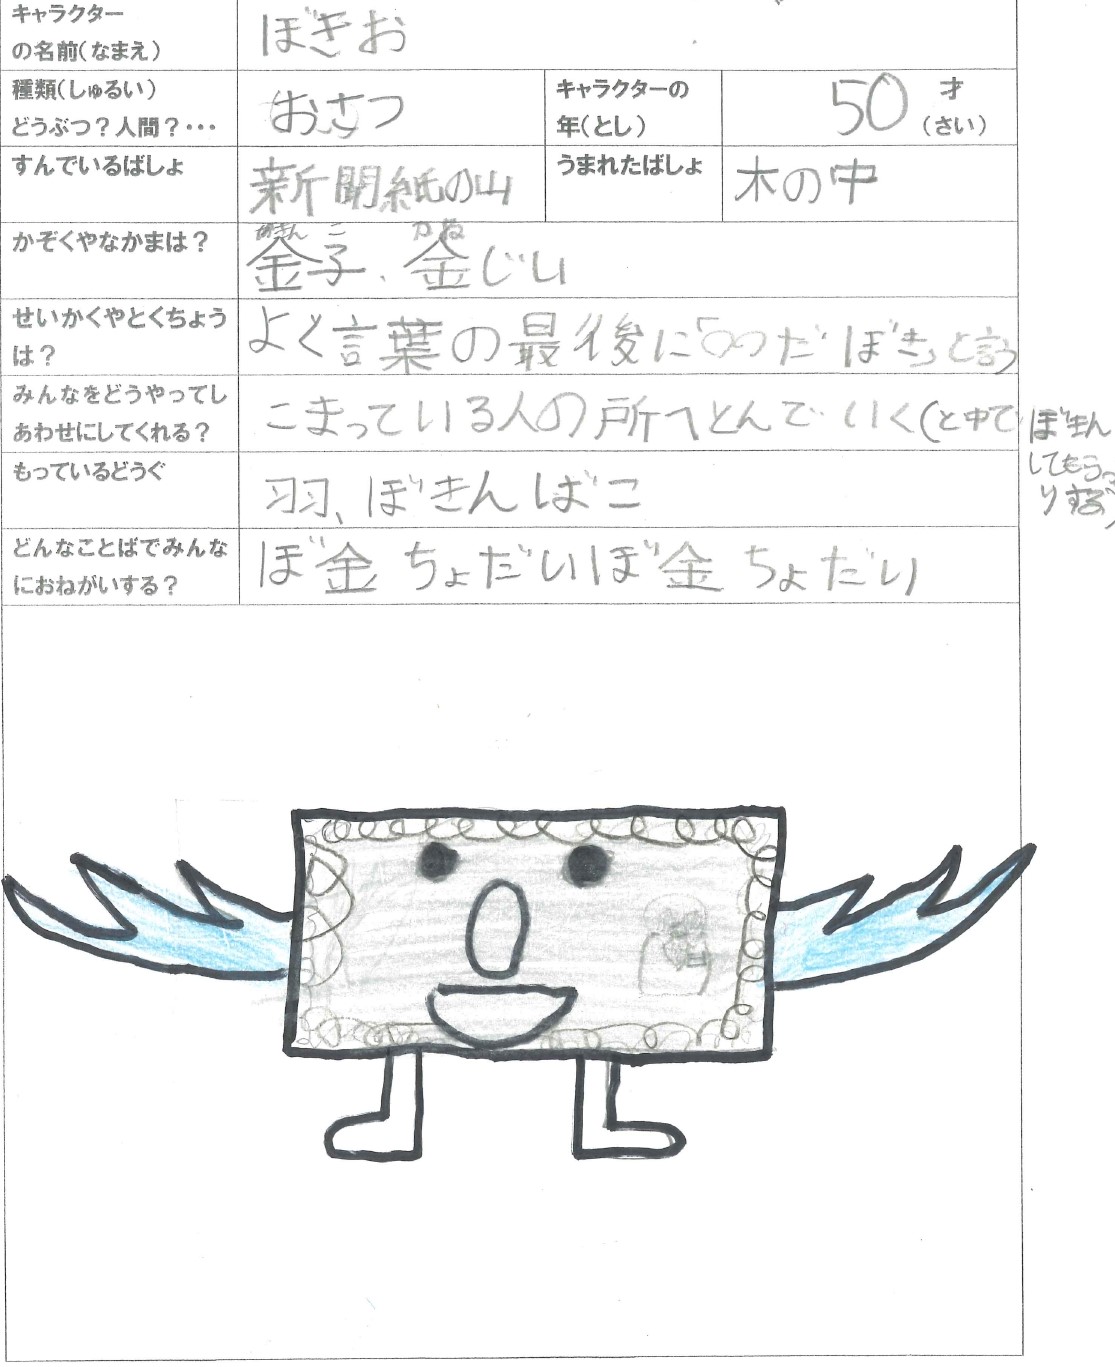 キャラクター
の名前(なまえ)
ぼきお
種類(しゅるい)
どうぶつ?人間?・・・
おさつ
キャラクターの
年(とし)
50
才
(さい)
すんでいるばしょ
新聞紙の山
うまれたばしょ
木の中
かぞくやなかまは?
こ かね
金子、金じい
せいかくやとくちょう
は?
よく言葉の最後に「〇〇だぼき」と言う
みんなをどうやってし
あわせにしてくれる?
こまっている人の所へとんでいく(と中で
ぼきん
してもらっ
りする)
もっているどうぐ
羽、ぼきんばこ
どんなことばでみんな
におねがいする?
ぼ金ちょだいぼ金ちょだい